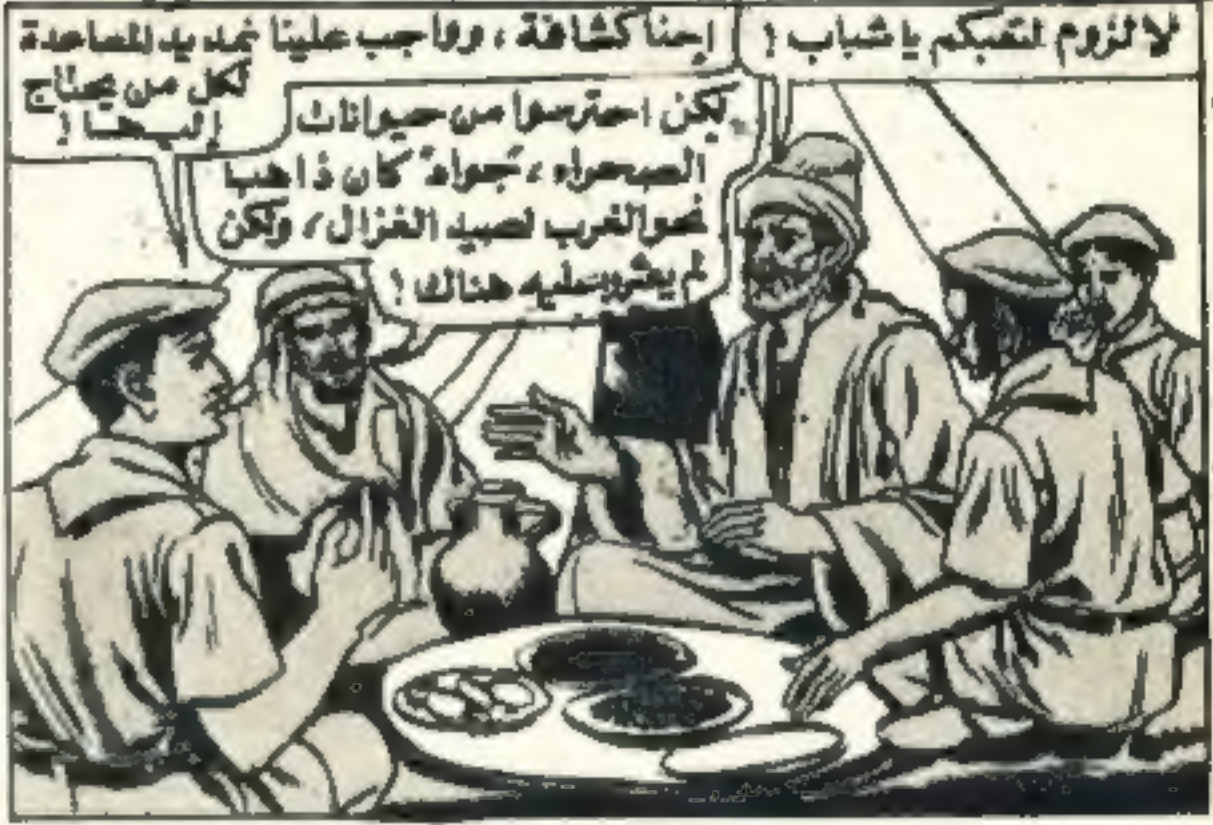 لا لزوم لتعبكم يا شباب !
إحنا كشافة ، وواجب علينا نمد يد المساعدة
لكل من يحتاج
إليها !
لكن احترسوا من حيوانات
الصحراء ، "جواد" كان ذاهب
نحو الغرب لصيد الغزال ، ولكن
لم يعثروا عليه هناك !